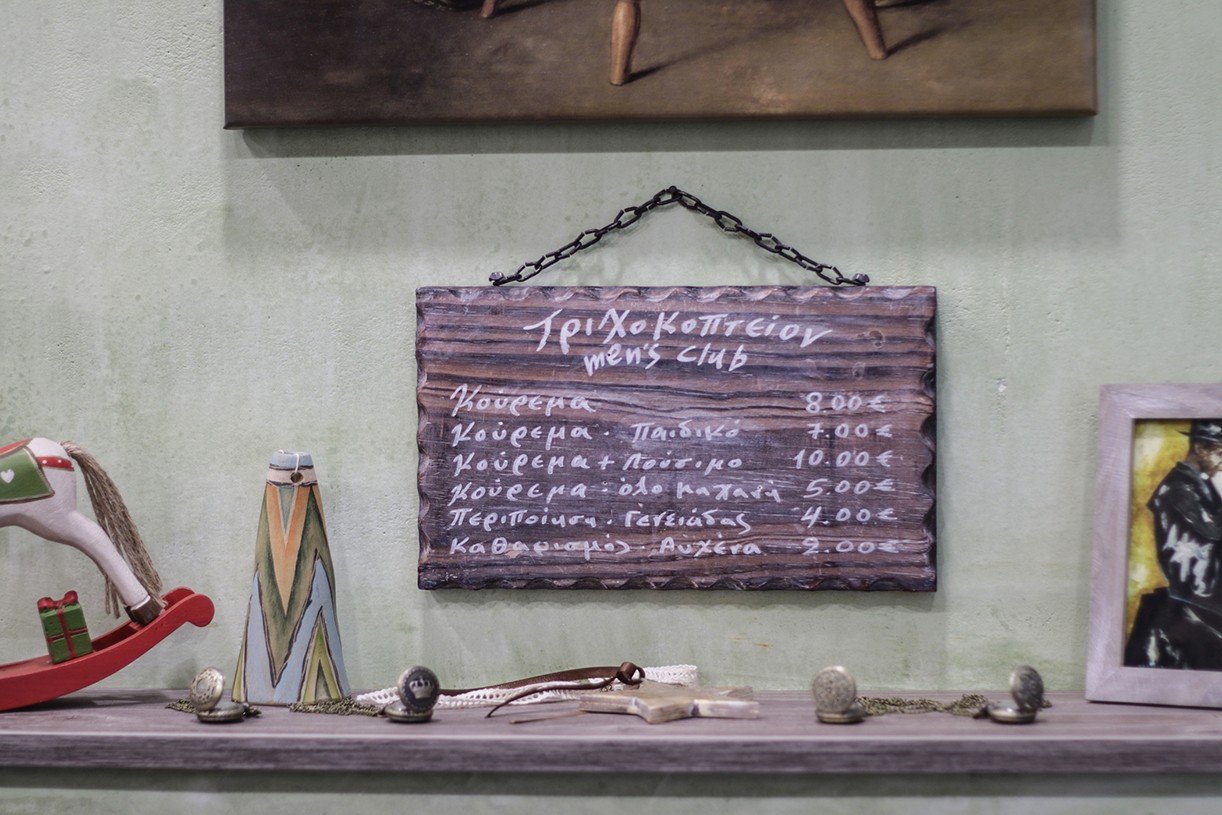 Τριχοκοπτείον
men's club
Κούρεμα 8.00€
Κούρεμα · Παιδικό 7.00€
Κούρεμα + Λούσιμο 10.00€
Κούρεμα · όλο μηχανή 5.00€
Περιποίηση · Γενειάδας 4.00€
Καθαρισμός · Αυχένα 2.00€